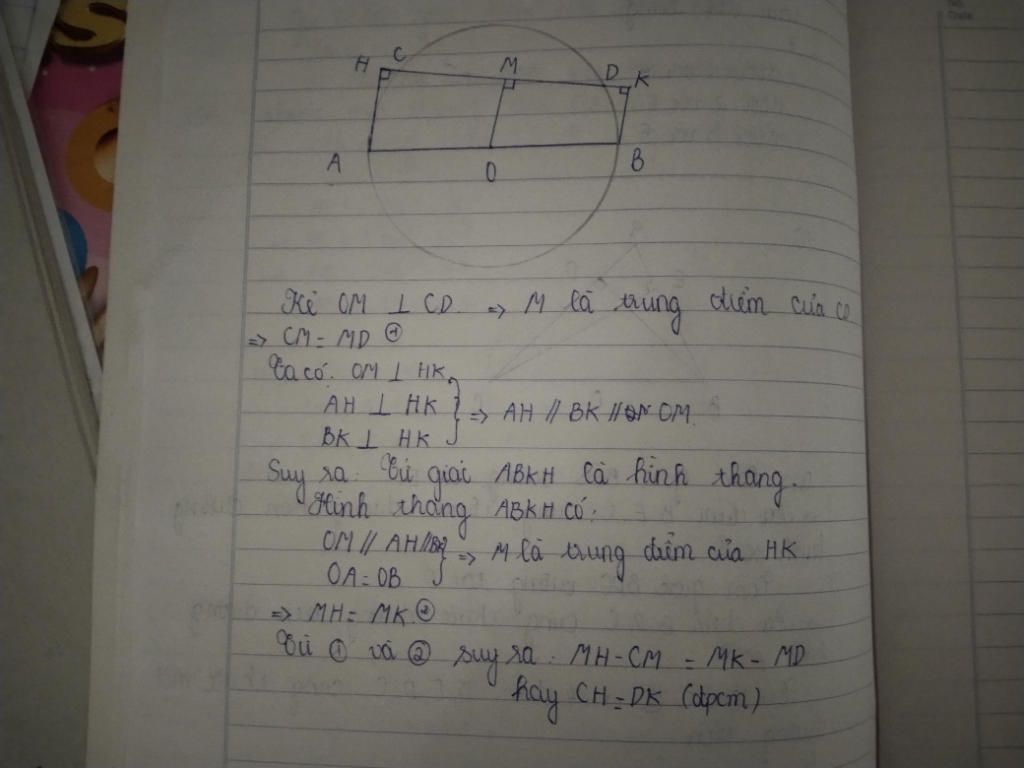 H C M D K
A O B
Kẻ OM ⊥ CD. => M là trung điểm của CD
=> CM = MD ①
Ta có: OM ⊥ HK
AH ⊥ HK
BK ⊥ HK
=> AH // BK // OM.
Suy ra: Tứ giác ABKH là hình thang.
Hình thang ABKH có:
OM // AH // BK
OA = OB
=> M là trung điểm của HK
=> MH = MK ②
Từ ① và ② suy ra: MH - CM = MK - MD
hay CH = DK (đpcm)